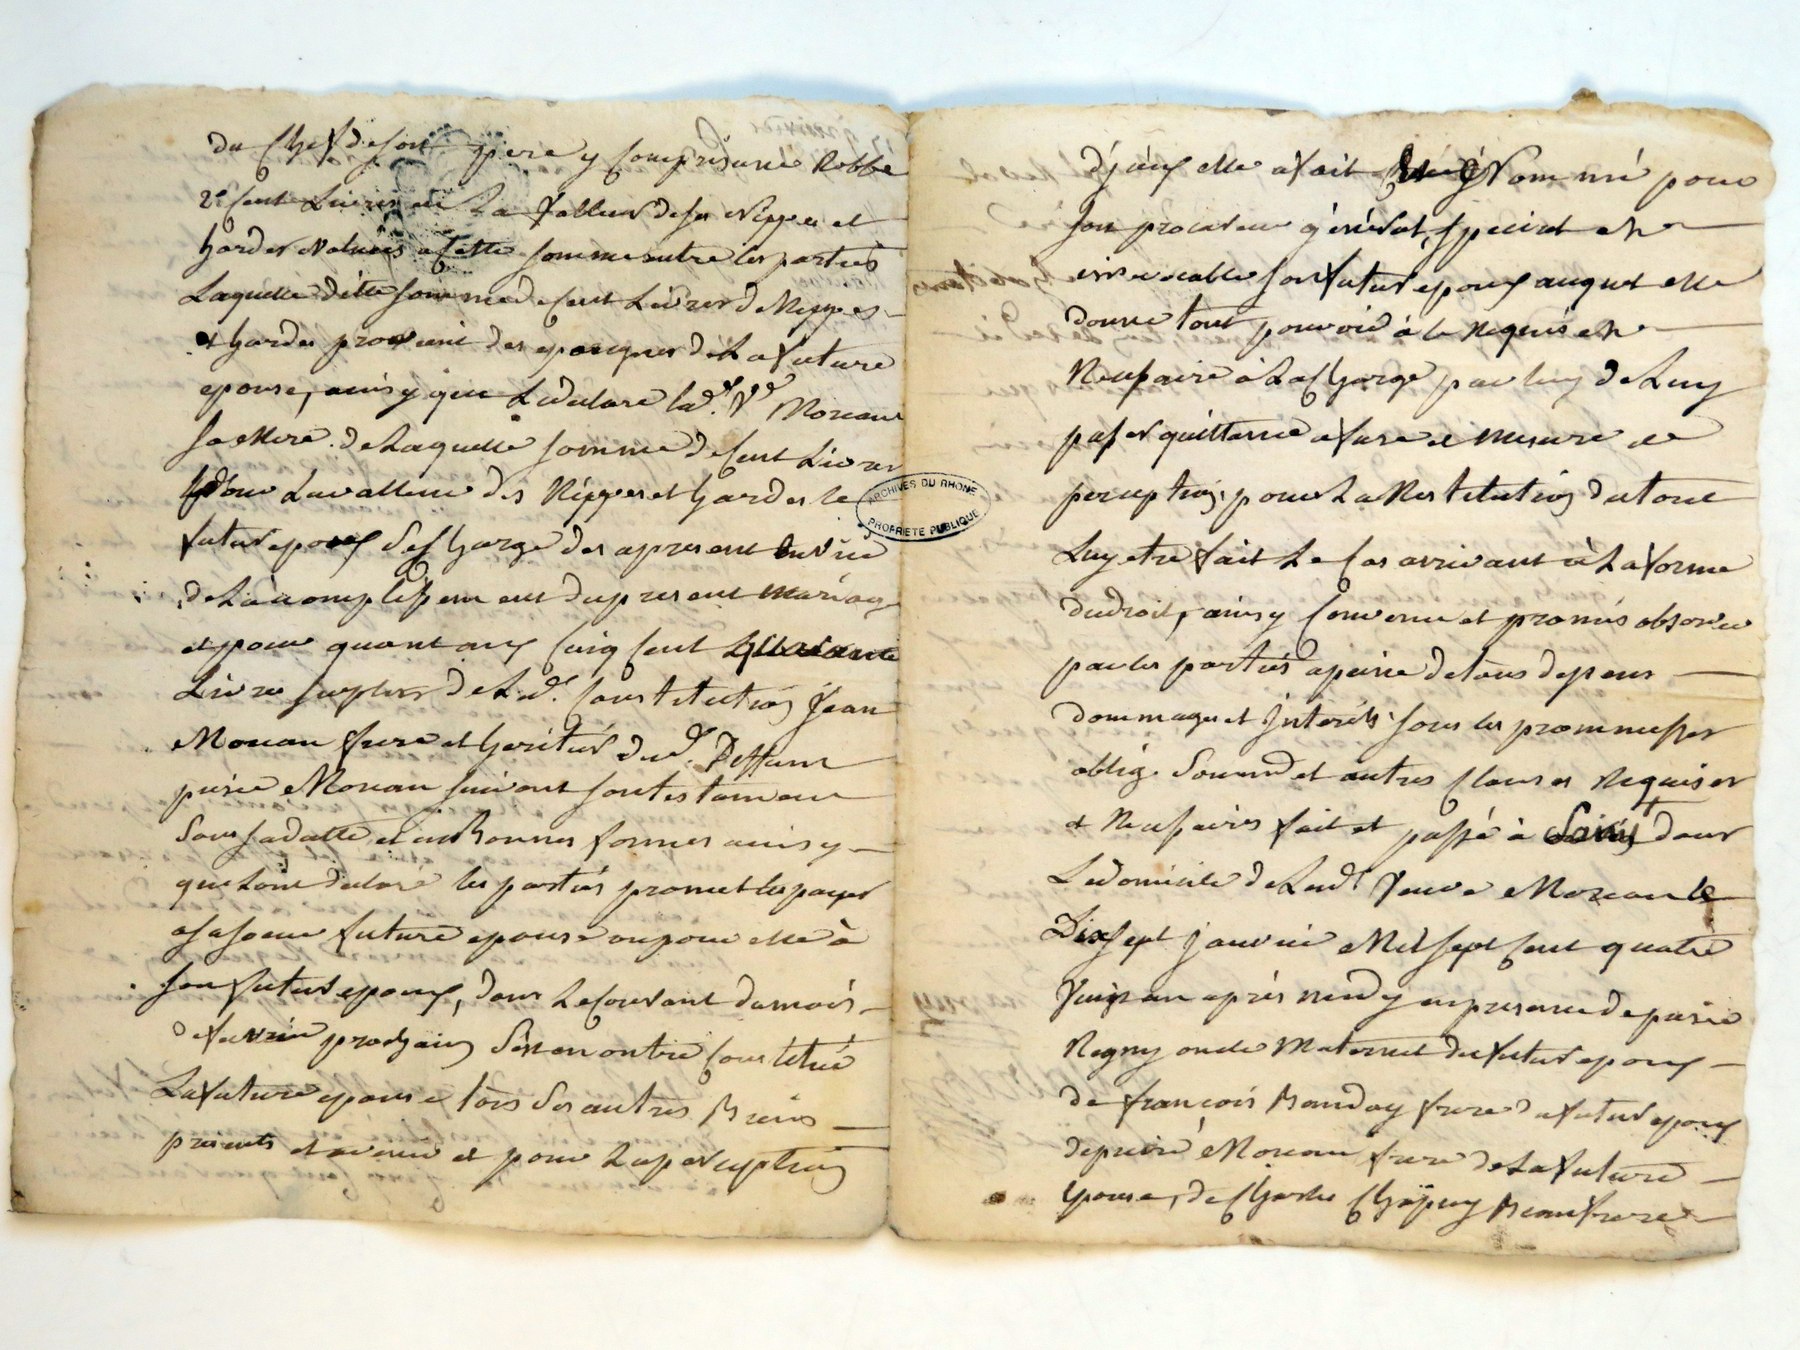 du Chef de son pere y Compris une Robbe
2° Cent Livres en La Valleur de ses Nippes et
hardes evaluées a Cette somme entre les parties
Laquelle ditte somme de Cent Livres de Nippes
et hardes provient des epargnes de La future
epouse, ainsy que Le declare lad.e V.e Moreau
sa Mere. de Laquelle somme de Cent Livres
pour La valleur des Nippes et hardes le
futur epoux Se Charge des apresent en vüe
de L'acomplissement du present mariage
et pour quant aux Cinq Cent quarante
Livres surplus de Lad.e Constitution Jean
Moreau frere et heritier dud. Deffunt
pierre Moreau suivant son testament
Sous sa datte et en Bonnes formes ainsy
que L'ont declaré les parties promet les payer
a sa soeur future epouse ou pour elle à
son futur epoux, dans Le Courant du mois
de fevrier prochain S'est en outre Constitué
La future epouse tous Ses autres Biens
presents et avenir et pour La perception
ARCHIVES DU RHONE
PROPRIETE PUBLIQUE
d'jceux elle a fait et Nommé pour
son procureur général, special et
irrevocable son futur epoux auquel elle
donne tout pouvoir à le Requis et
Necessaire à La Charge par luy de Luy
passer quittance a fure et mesure de
perception, pour La Restitution du tout
Luy etre fait Le Cas arrivant à La forme
du droit, ainsy Convenu et promis observer
par les parties a peine de tous depens
dommages et Jnterêts sous les prommesses
oblig. Soumd et autres Clauses Requises
et Necessaires fait et passé à dans
Le domicile de Lad.e Veuve Moreau le
Dix sept Janvier Mil sept Cent quatre
Vingt un après midy en presence de pierre
Regny oncle Maternel du futur epoux
de françois Bonday frere du futur epoux
de pierre Moreau frere de La future
Epouse, de Charles Chapuy Beaufrere